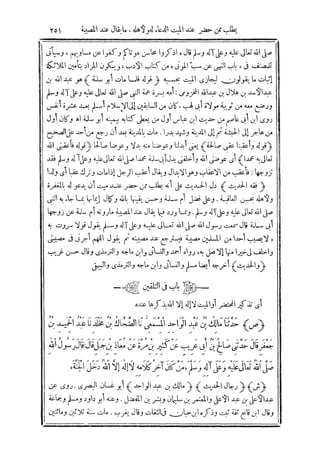 يطلب ممن حضر عند الميت الدعاء له ولأهله، ما يقال عند المصيبة ٢٥١
صلى الله تعالى عليه وعلى آله وسلم قال « اذكروا محاسن موتاكم وكفوا عن مساويهم » وسيأتى
للمصنف فى « باب النهى عن سب الموتى » من كتاب الأدب ، ويكون المراد بتأمين الملائكة
إثبات ما يقولون ليجازى الميت بحسبه ﴿ قوله فلما مات أبو سلمة ﴾ هو عبد الله بن
عبد الأسد بن هلال بن عبد الله المخزومى ، أمه برة عمة النبى صلى الله تعالى عليه وعلى آله وسلم
ورضع معه من ثويبة مولاة أبى لهب ، كان من السابقين إلى الإسلام أسلم بعد عشرة أنفس
روى ابن أبى عاصم من حديث ابن عباس أول من يعطى كتابه بيمينه أبو سلمة اه وكان أول
من هاجر إلى الحبشة ثم إلى المدينة وشهد بدرا . مات بالمدينة بعد أن رجع من أحد على الصحيح
﴿ قوله وأعقبنا عقبى صالحة ﴾ يعنى أبدلنا وعوضنا منه بدلا وعوضا صالحا ﴿ قوله فأعقبنى الله
تعالى به محمدا ﴾ أى عوضنى الله وأخلفنى بدل أبى سلمة محمدا صلى الله تعالى عليه وعلى آله وسلم فقد
تزوجها ؛ فأعقب من الإعقاب وهو الإبدال ويقال أعقب الرجل إذا مات وترك عقبا أى ولدا
﴿ فقه الحديث ﴾ دل الحديث على أنه يطلب ممن حضر عند ميت أن يدعو له بالمغفرة
ولأهله بحسن العاقبة . وعلى فضل أم سلمة وحسن يقينها بالله وكمال إيمانها بما جاء به النبى
صلى الله تعالى عليه وعلى آله وسلم . ومما ورد فيما يقال عند المصيبة ما روته أم سلمة عن زوجها
أبى سلمة قال سمعت رسول الله صلى الله تعالى عليه وعلى آله وسلم يقول قولا سررت به
« لا يصيب أحدا من المسلمين مصيبة فيسترجع عند مصيبته ثم يقول اللهم أجرنى فى مصيبتى
واخلف لى خيرا منها إلا فعل به » رواه أحمد والنسائى وابن ماجه والترمذى وقال حسن غريب
﴿ والحديث ﴾ أخرجه أيضا مسلم والنسائى وابن ماجه والترمذى والبيهقى
باب فى التلقين
أى تذكير المحتضر أو الميت لا إله إلا الله بذكرها عنده
﴿ ص ﴾ حَدَّثَنَا مَالِكُ بْنُ عَبْدِ الْوَاحِدِ الْمِسْمَعِىُّ نَا الضَّحَّاكُ بْنُ مَخْلَدٍ نَا عَبْدُ الْحَمِيدِ بْنُ
جَعْفَرٍ قَالَ حَدَّثَنِى صَالِحُ بْنُ أَبِى عَرِيبٍ عَنْ كَثِيرِ بْنِ مُرَّةَ عَنْ مُعَاذِ بْنِ جَبَلٍ قَالَ قَالَ رَسُولُ اللهِ
صَلَّى اللهُ تَعَالَى عَلَيْهِ وَعَلَى آلِهِ وَسَلَّمَ ، مَنْ كَانَ آخِرُ كَلَامِهِ لَا إِلَهَ إِلَّا اللهُ دَخَلَ الْجَنَّةَ »
﴿ ش ﴾ ﴿ رجال الحديث ﴾ ﴿ مالك بن عبد الواحد ﴾ أبو غسان البصرى . روى عن
عبد الأعلى بن عبد الأعلى والمعتمر بن سليمان وبشر بن المفضل . وعنه أبو داود ومسلم وجماعة
وقال ابن قانع ثقة ثبت وذكره ابن حبان فى الثقات وقال يغرب . مات سنة ثلاثين ومائتين